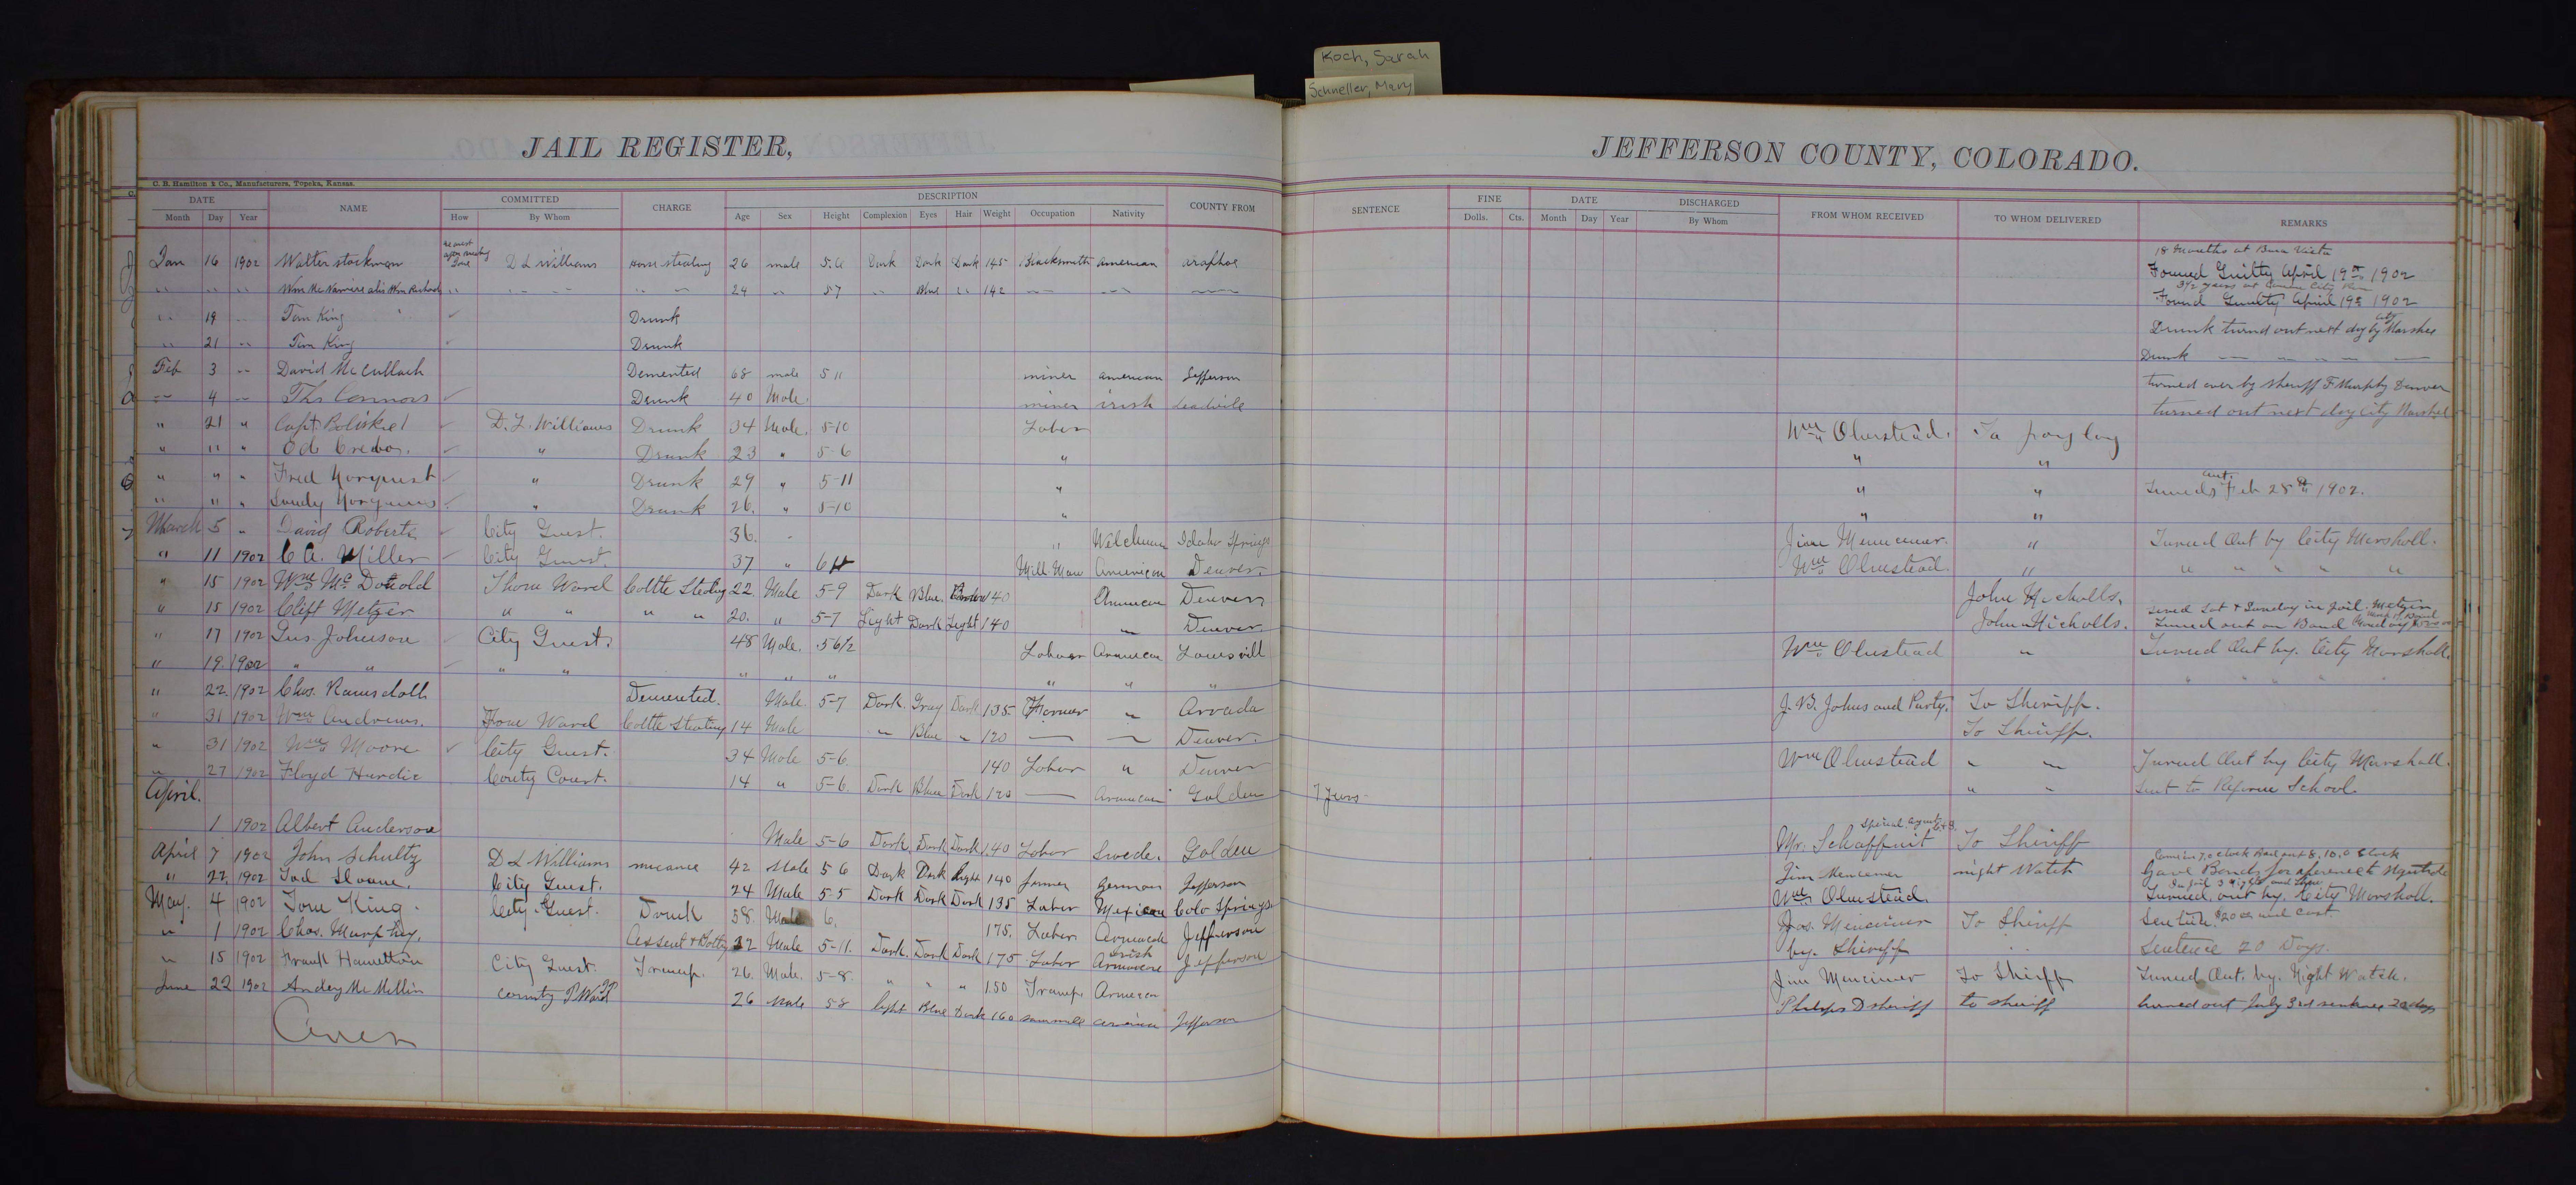 Koch, Sarah
Schneller, Mary
JAIL REGISTER,
JEFFERSON COUNTY, COLORADO.
C. B. Hamilton & Co., Manufacturers, Topeka, Kansas.
DATE NAME COMMITTED CHARGE DESCRIPTION COUNTY FROM SENTENCE FINE DATE DISCHARGED FROM WHOM RECEIVED TO WHOM DELIVERED REMARKS
Month Day Year How By Whom Age Sex Height Complexion Eyes Hair Weight Occupation Nativity Dolls. Cts. Month Day Year By Whom
18 Months at Buna Vista
Jan 16 1902 Walter stockman D L Williams Horse stealing 26 male 5.6 Dark Dark Dark 145 Blacksmith american araphoe Found Guilty April 19th 1902
3 1/2 years at Canon City
" " " " " " " 24 " 57 " Blue " 142 Found Guilty April 19th 1902
" 19 " Tom King ✓ Drunk Drunk turnd out next day by City Marshel
" 21 " Tim King ✓ Drunk Drunk " " " " "
Feb 3 " David McCullach Demented 68 male 5 11 miner american Jefferson turned over by Sheriff F Murphy Denver
" 4 " Ths Connors ✓ Drunk 40 Male miner irish Leadvile turned out next day City Marshel
" 21 " Capt ✓ D. L. Williams Drunk 34 Male. 5-10 Labor Wm Olmstead.
" " " Ed ✓ " Drunk 23 " 5-6 " " "
" " " Fred Norquist ✓ " Drunk 29 " 5-11 " " " Turned out Feb 28th 1902.
" " " ✓ " Drunk 26. " 5-10 " " "
March 5 " David Roberts ✓ City Guest. 36. " " Welchman Idaho Springs " Turned Out by City Marshall.
" 11 1902 C A. Miller ✓ City Guest. 37 " 6 Mill Man American Denver. Wm Olmstead " " " " " "
" 15 1902 Wm Mc Donold Thom Ward Cattle Stealing 22. Male 5-9 Dark Blue. 140 American Denver John Nicholls.
" 15 1902 Clift Metzer " " " " 20. " 5-7 Light Dark Light 140 " Denver. John Nicholls.
" 17 1902 Gus. Johnson ✓ City Guest. 48 Male. 5 6 1/2 Labor American Louisvill Wm Olmstead " Turned Out by. City Marshall.
" 19. 1902 " " ✓ " " " " " " " "
" 22. 1902 Chas. Ramsdoll Demented. Male. 5-7 Dark. Gray Dark 135. Farmer " Arvada J. B. Johns and Party. To Sheriff.
" 31 1902 Wm Andrews. Ward Cattle Stealing 14 Male " Blue " 120 — — Denver. To Sheriff.
" 31 1902 Wm Moore ✓ City Guest. 34 Male 5-6. 140 Labor " Denver Wm Olmstead " " Turned Out by City Marshall.
" 27 1902 Floyd Hurdie County Court. 14 " 5-6. Dark Blue Dark 120 — American Golden 7 Years " " Sent to Reform School
April.
1 1902 Albert Anderson Male 5-6 Dark. Dark Dark 140 Labor Swede. Golden Special Agent Mr. To Sheriff
April 7 1902 John Schultz D L Williams nucance 42 Male 5 6 Dark Dark light 140 farmer German Jefferson Jim night Watch
" 22. 1902 City Guest. 24 Male 5-5 Dark Dark Dark 135 Labor Mexican Colo Springs Wm Olmstead. Turned out by. City Marshall.
May. 4 1902 Tom King. City Guest. Drunk 58. Male 6. 175. Labor Jefferson To Sheriff $20.00 and Cost
" 1 1902 Chas. Murphy. 32 Male 5-11. Dark. Dark Dark 175 Labor Irish Jefferson by. Sheriff " Sentence 20 Days.
" 15 1902 Frank Hamelton City Guest. Tramp. 26. Male. 5-8. " " " 150 Tramp. American Jim To Sheriff Turned Out. by. Night Watch.
June 22 1902 Andey McMillin county P Ward 26 Male 5 8 light Blue Dark 160 Jefferson Phelps D sheriff to sheriff turned out July 3rd sentence 20 days